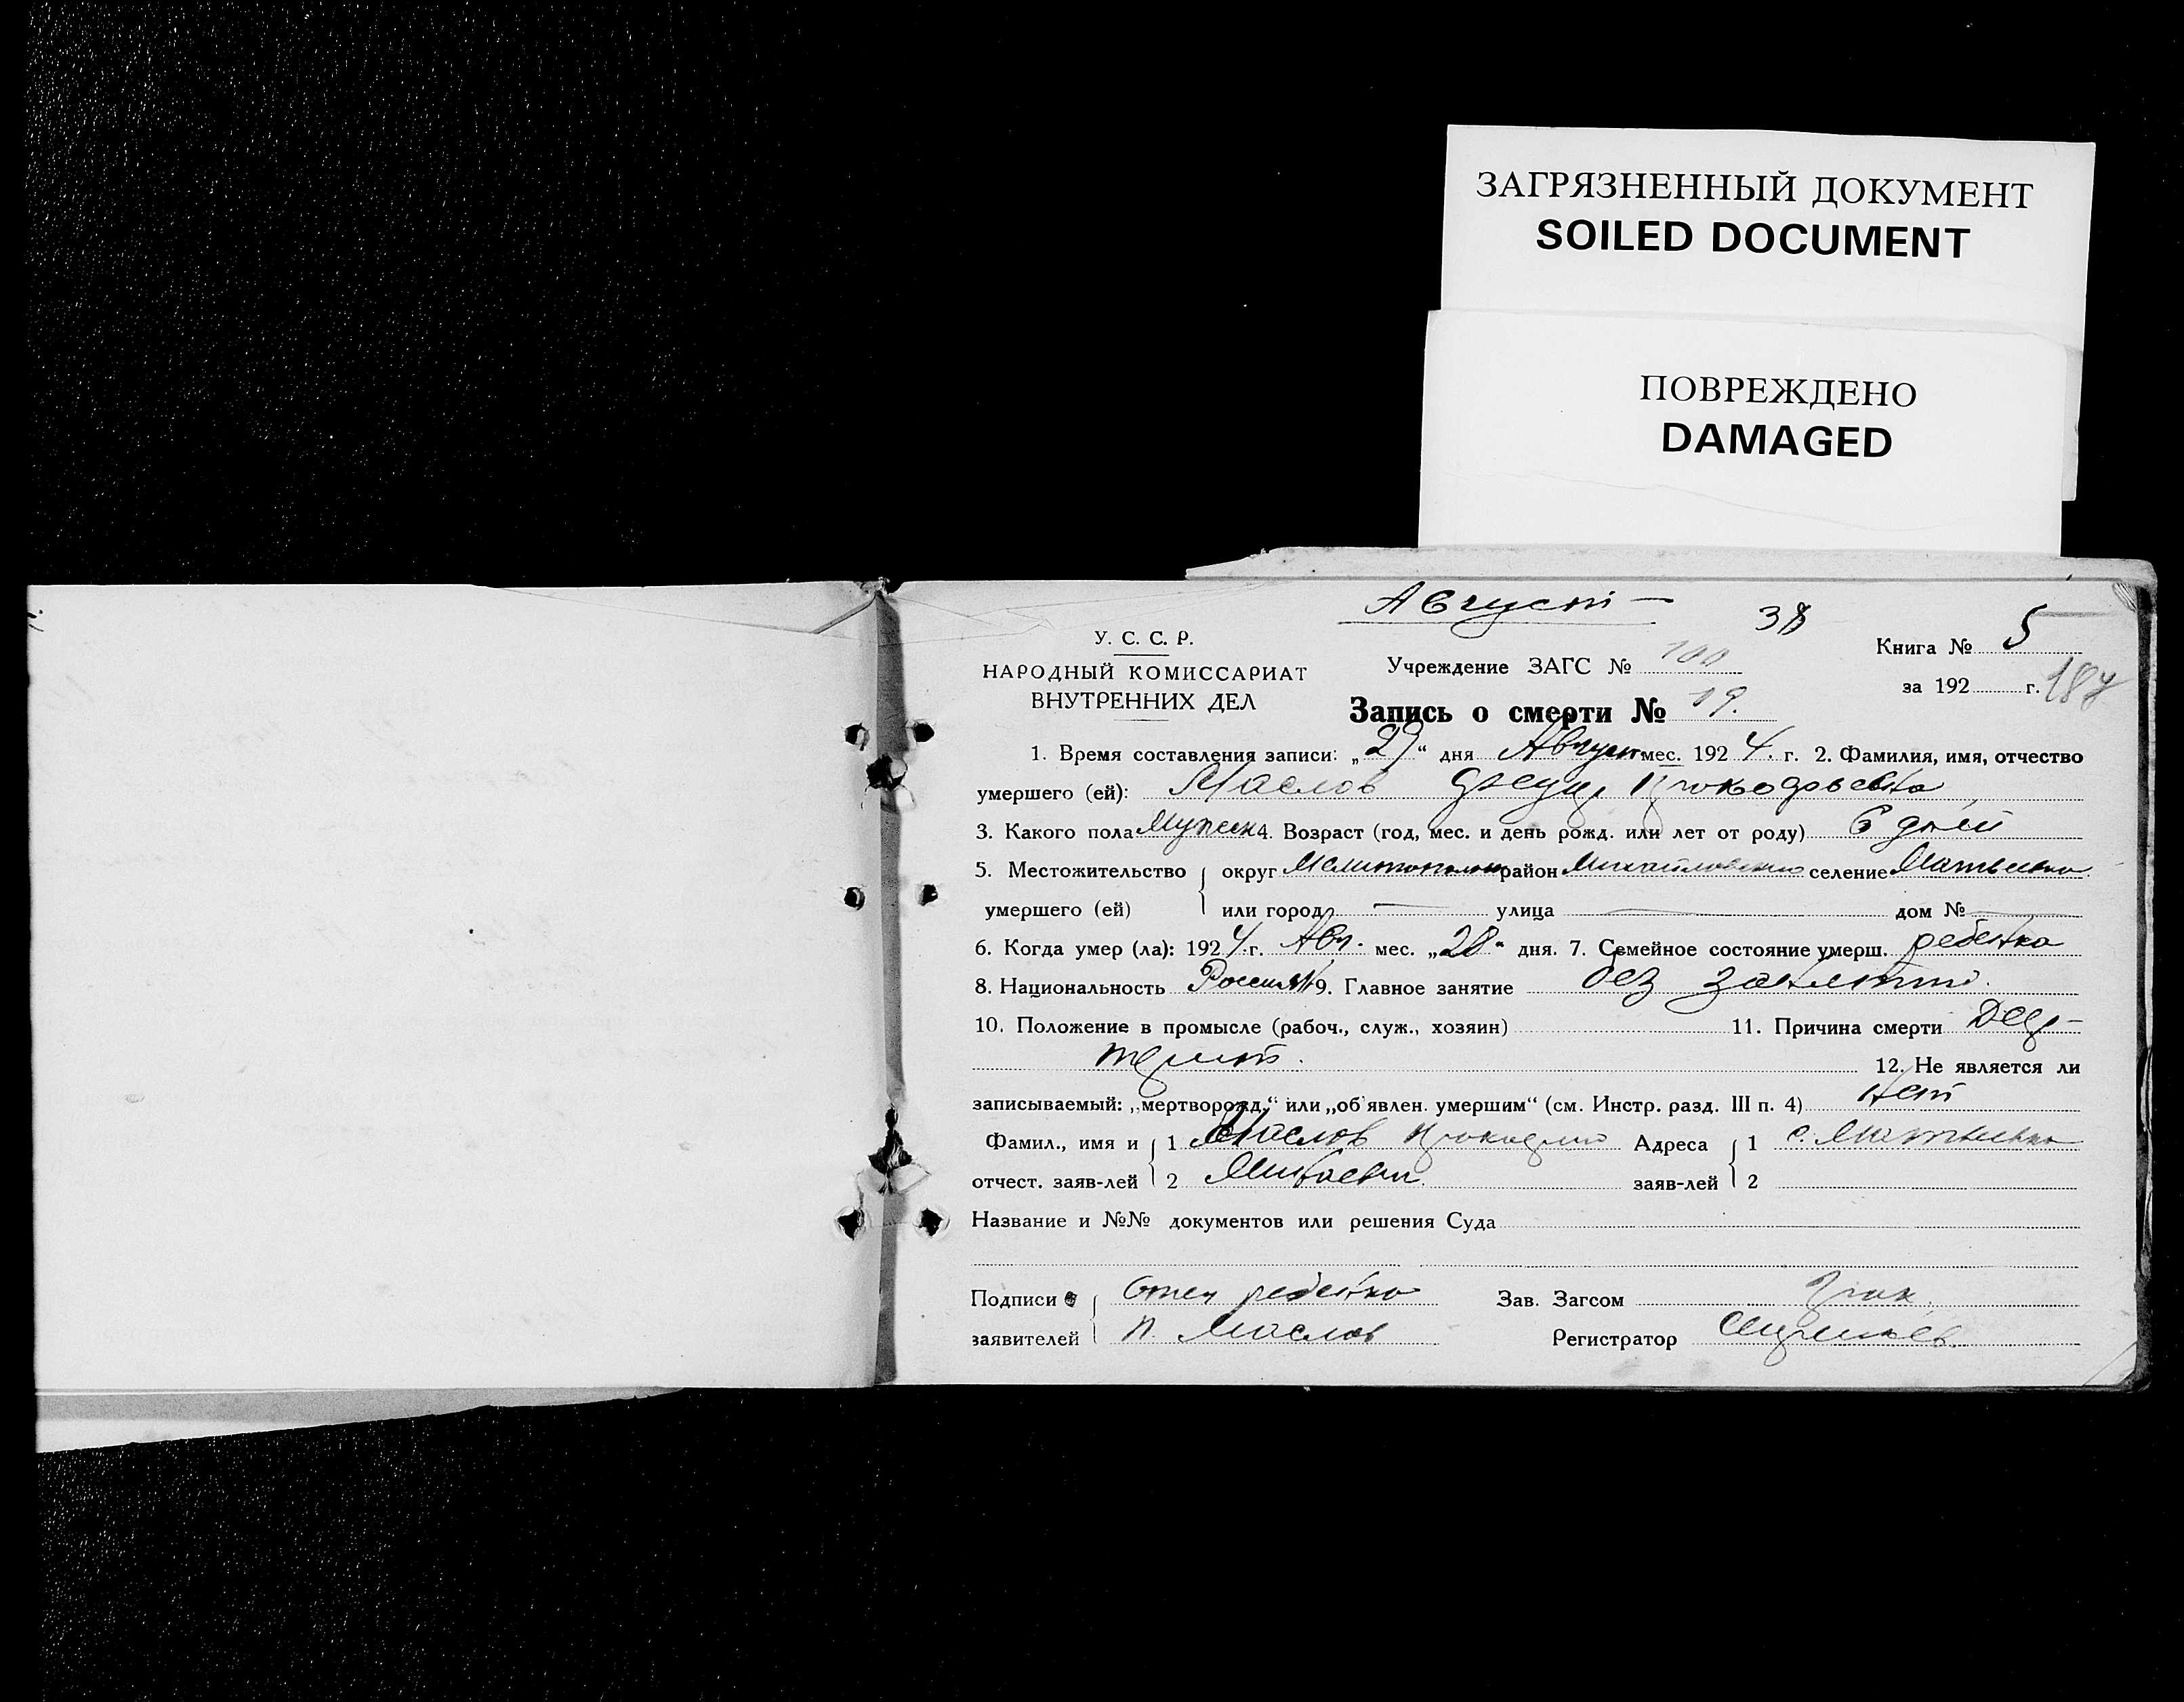 ЗАГРЯЗНЕННЫЙ ДОКУМЕНТ
SOILED DOCUMENT
ПОВРЕЖДЕНО
DAMAGED
Август —
38
У. С. С. Р.
НАРОДНЫЙ КОМИССАРИАТ
ВНУТРЕННИХ ДЕЛ
Учреждение ЗАГС № 100
Книга № 5
за 192 г. 187
Запись о смерти № 19.
1. Время составления записи: „29“ дня Август мес. 1924. г. 2. Фамилия, имя, отчество
умершего (ей): Маслов
3. Какого пола Мужск 4. Возраст (год, мес. и день рожд. или лет от роду) 6 дней
5. Местожительство округ район Михайловский селение
умершего (ей) или город — улица — дом № —
6. Когда умер (ла): 1924 г. Авг. мес. „28“ дня. 7. Семейное состояние умерш. ребенка
8. Национальность 9. Главное занятие без занятий.
10. Положение в промысле (рабоч., служ., хозяин) 11. Причина смерти
12. Не является ли
записываемый: „мертворожд.“ или „об'явлен. умершим“ (см. Инстр. разд. III п. 4) Нет
Фамил., имя и 1 Маслов Адреса 1 с.
отчест. заяв-лей 2 заяв-лей 2
Название и №№ документов или решения Суда
Подписи Отец ребенка Зав. Загсом
заявителей П. Маслов Регистратор